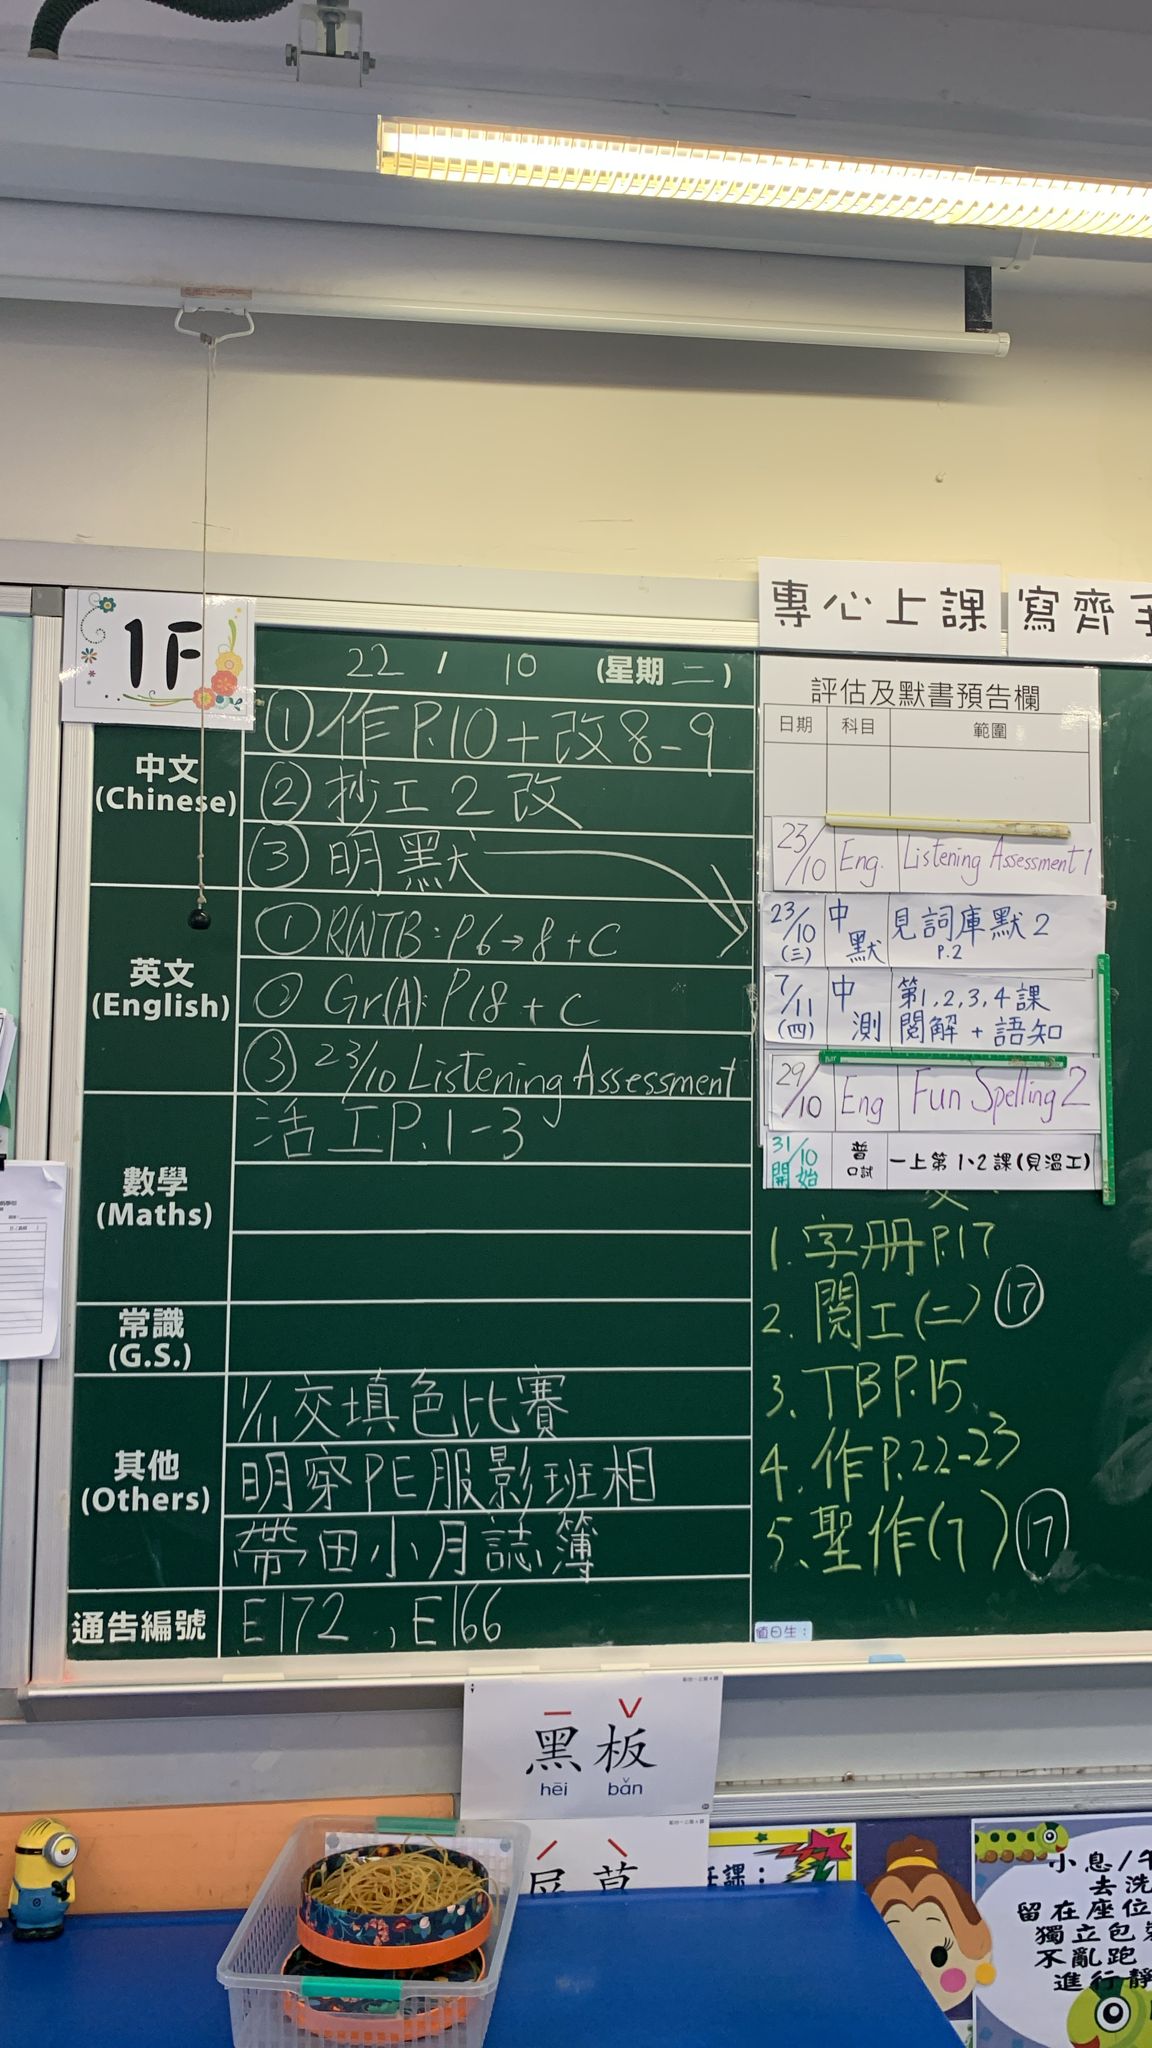 1F
22 / 10 (星期二)
中文
(Chinese)
① 作 P.10 + 改 8-9
② 抄工 2 改
③ 明默
英文
(English)
① RWTB: P6→8 + C
② Gr(A): P18 + C
③ 23/10 Listening Assessment
數學
(Maths)
活工 P.1-3
常識
(G.S.)
其他
(Others)
1/11交填色比賽
明穿PE服影班相
帶田小月誌簿
通告編號
E172 , E166
專心上課 寫齊
評估及默書預告欄
日期 科目 範圍
23/10 Eng. Listening Assessment 1
23/10 (三) 中默 見詞庫默2 P.2
7/11 (四) 中測 第1,2,3,4課 閱解 + 語知
29/10 Eng Fun Spelling 2
31/10 開始 普口試 一上第1、2課(見溫工)
1. 字册 P.17
2. 閱工(二) ⑰
3. TB P.15
4. 作 P.22-23
5. 聖作(7) ⑰
值日生：
黑板
hēi bǎn
課：
小息/
去洗
留在座位
獨立包
不亂跑
進行靜